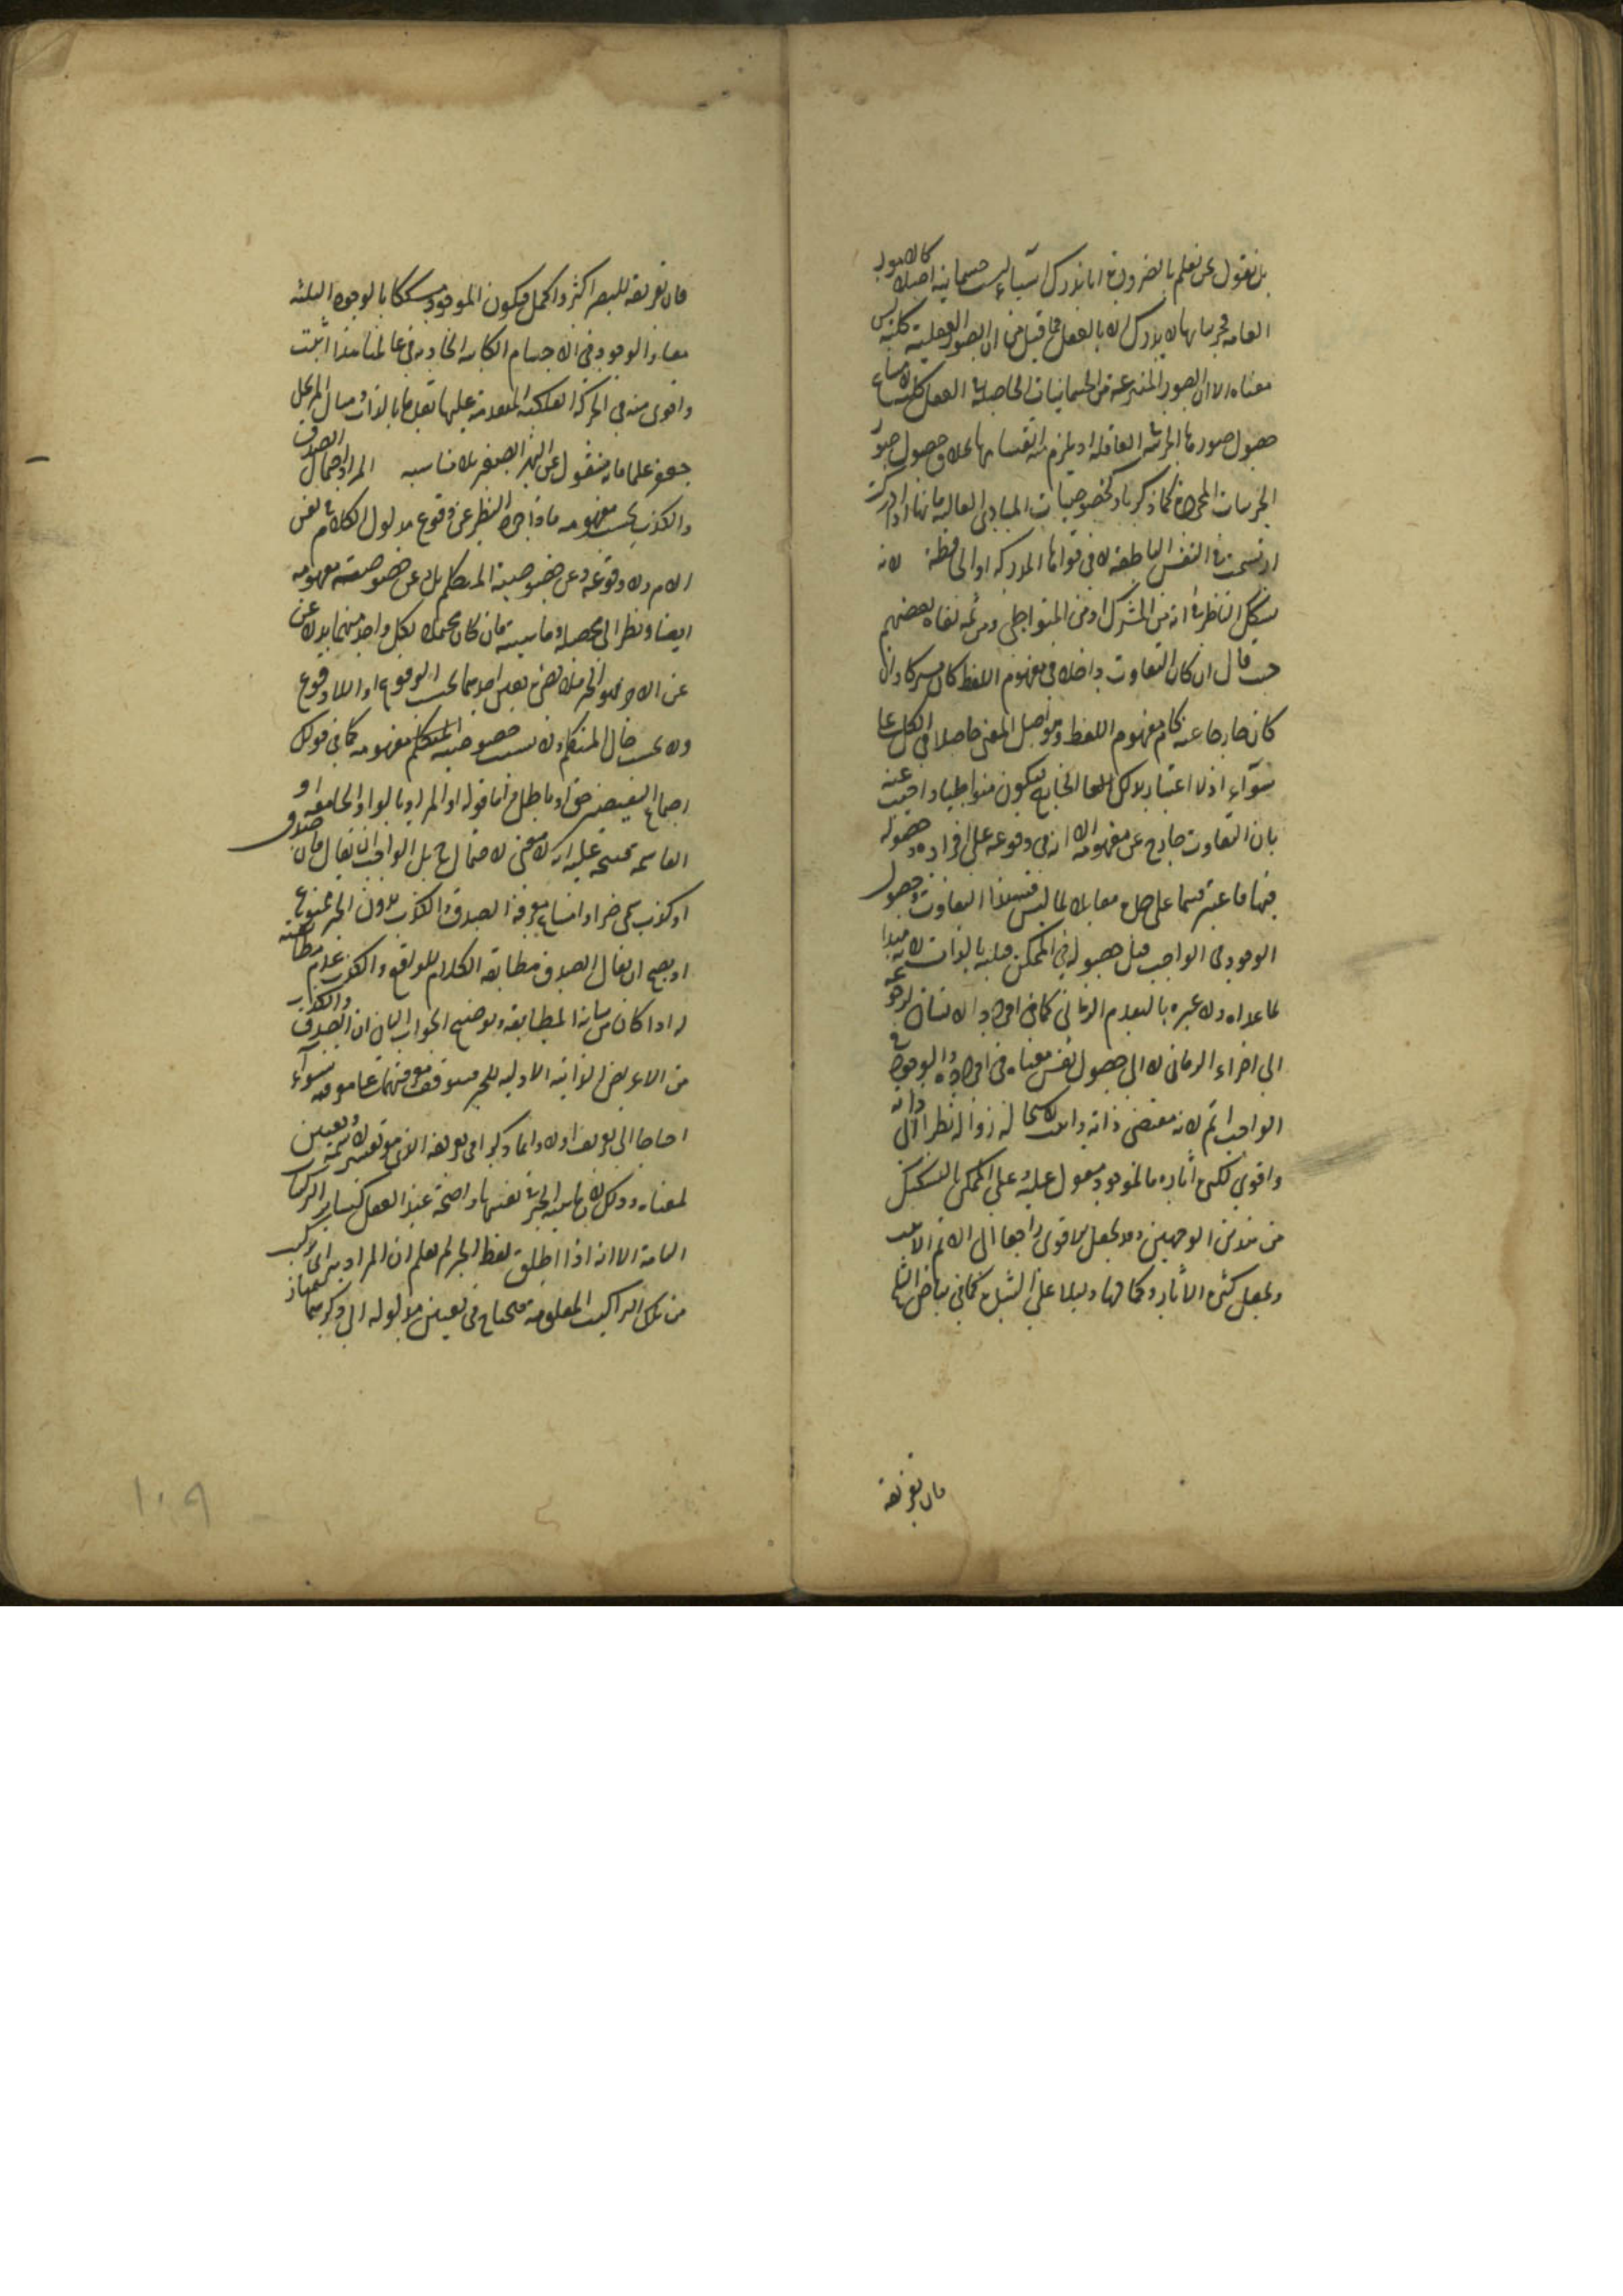 بل نقول نحن نعلم بالضرورة انا ندرك اشياء ليست جسمانية اصلا كالامور
العامة فجزئياتها لا يدرك الا بالعقل فما قيل من ان الصور العقلية كلية ليس
معناه الا ان الصور المنتزعة من الجسمانيات الحاصلة في العقل كلية لامتناع
حصول صورها الجزئية في العاقلة اذ يلزم منه انقسامها بخلاف حصول صور
الجزئيات المجردة كما ذكر باد كخصوصيات المبادي العالية فانها اذا ادركت
ارتسمت في النفس الناطقة لا في قواها المدركة او الحافظة لانه
يشكك الناظر في انه من المشترك او من المتواطي ومن ثمه نفاه بعضهم
حيث قال ان كان التفاوت داخلا في مفهوم اللفظ كان مشتركا وان
كان خارجا عنه كان مفهوم اللفظ وهو اصل المعنى حاصلا في الكل على
سواء اذ لا اعتبار بذلك الخارج فيكون متواطيا واجيب عنه
بان التفاوت خارج عن مفهومه الا انه في وقوعه على افراده وحصوله
فيها فاعتبر قسما على حدة مقابلا لما ليس فيه هذا التفاوت وحصول
الوجود في الواجب قبل حصوله في الممكن قبلية بالذات لانه مبدا
لما عداه ولا عبرة بالتقدم الزماني كما في افراد الانسان لرجوعه
الى اجزاء الزمان لا الى حصول نفس معناه في افراده والوجود في
الواجب اتم لانه مقتضى ذاته ولذلك استحال زواله نظرا الى ذاته
واقوى لكثرة آثاره فالموجود مقول عليه وعلى الممكن بالتشكيك
من هذين الوجهين وقد يجعل الاقوى راجعا الى الاتم الاثبت
ويجعل كثرة الآثار وكمالها دليلا على الشدة كما في بياض الثلج
فان تفريقه
فان تفريقه للبصر اكثر واكمل فيكون الموجود مشككا بالوجوه الثلثة
معا والوجود في الاجسام الكائنة الحادثة في عالمنا هذا اثبت
واقوى منه في الحركة الفلكية المتقدمة عليها تقدما بالذات ومثال المرجل
جعفر علما فانه منقول عن النهر الصغير بلا مناسبة المراد احتمال الصدق
والكذب بحسب مفهومه ماواجره النظر عن وقوع مدلول الكلام في نفس
الامر ولا وقوعه وعن خصوصية المتكلم بل عن خصوصية مفهومه
ايضا ونظر الى محصله وماهيته فان كان محتملا لكل واحد منهما بدلا عن
عن الاخر فهو الخبر فلا يضره تعين احدهما بحسب الوقوع او اللاوقوع
ولا بحسب حال المتكلم ولا بحسب خصوصية المتكلم مفهومه كما في قولك
اجتماع النقيضين حق او باطل فما قوله او المراد بالواو الجامعة او
القاسمة فيتجه عليه انه لا معنى للاحتمال ح بل الواجب ان يقال ما صدق
او كذب يسمى خبرا وامتناع معرفة الصدق والكذب بدون الخبر ممنوع
او يصح ان يقال الصدق مطابقة الكلام للواقع والكذب عدم مطابقته
له اذا كان من شانه المطابقة وتوضيح الجواب الثاني ان الصدق والكذب
من الاعراض الذاتية الاولية للخبر فيتوقف معرفتهما على معرفته سواء
احتاجا الى تعريف اولا وانما ذكرا في تعريفه الذي هو تفسير لاسمه وتعيين
لمعناه وذلك لان ماهية الخبر في نفسها واضحة عند العقل كسائر المركبات
التامة الا انه اذا اطلق لفظ الخبر لم يعلم ان المراد به اي تركيب
من تلك التراكيب المعلومة فيحتاج في تعيين مدلوله الى ذكر ما يمتاز
١٠٩